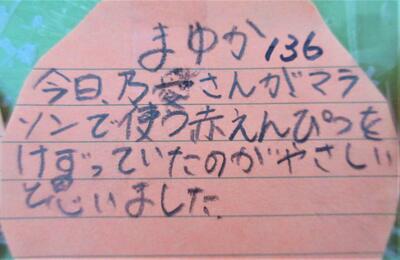 まゆか 136
今日、乃愛さんがマラ
ソンで使う赤えんぴつを
けずっていたのがやさしい
と思いました。